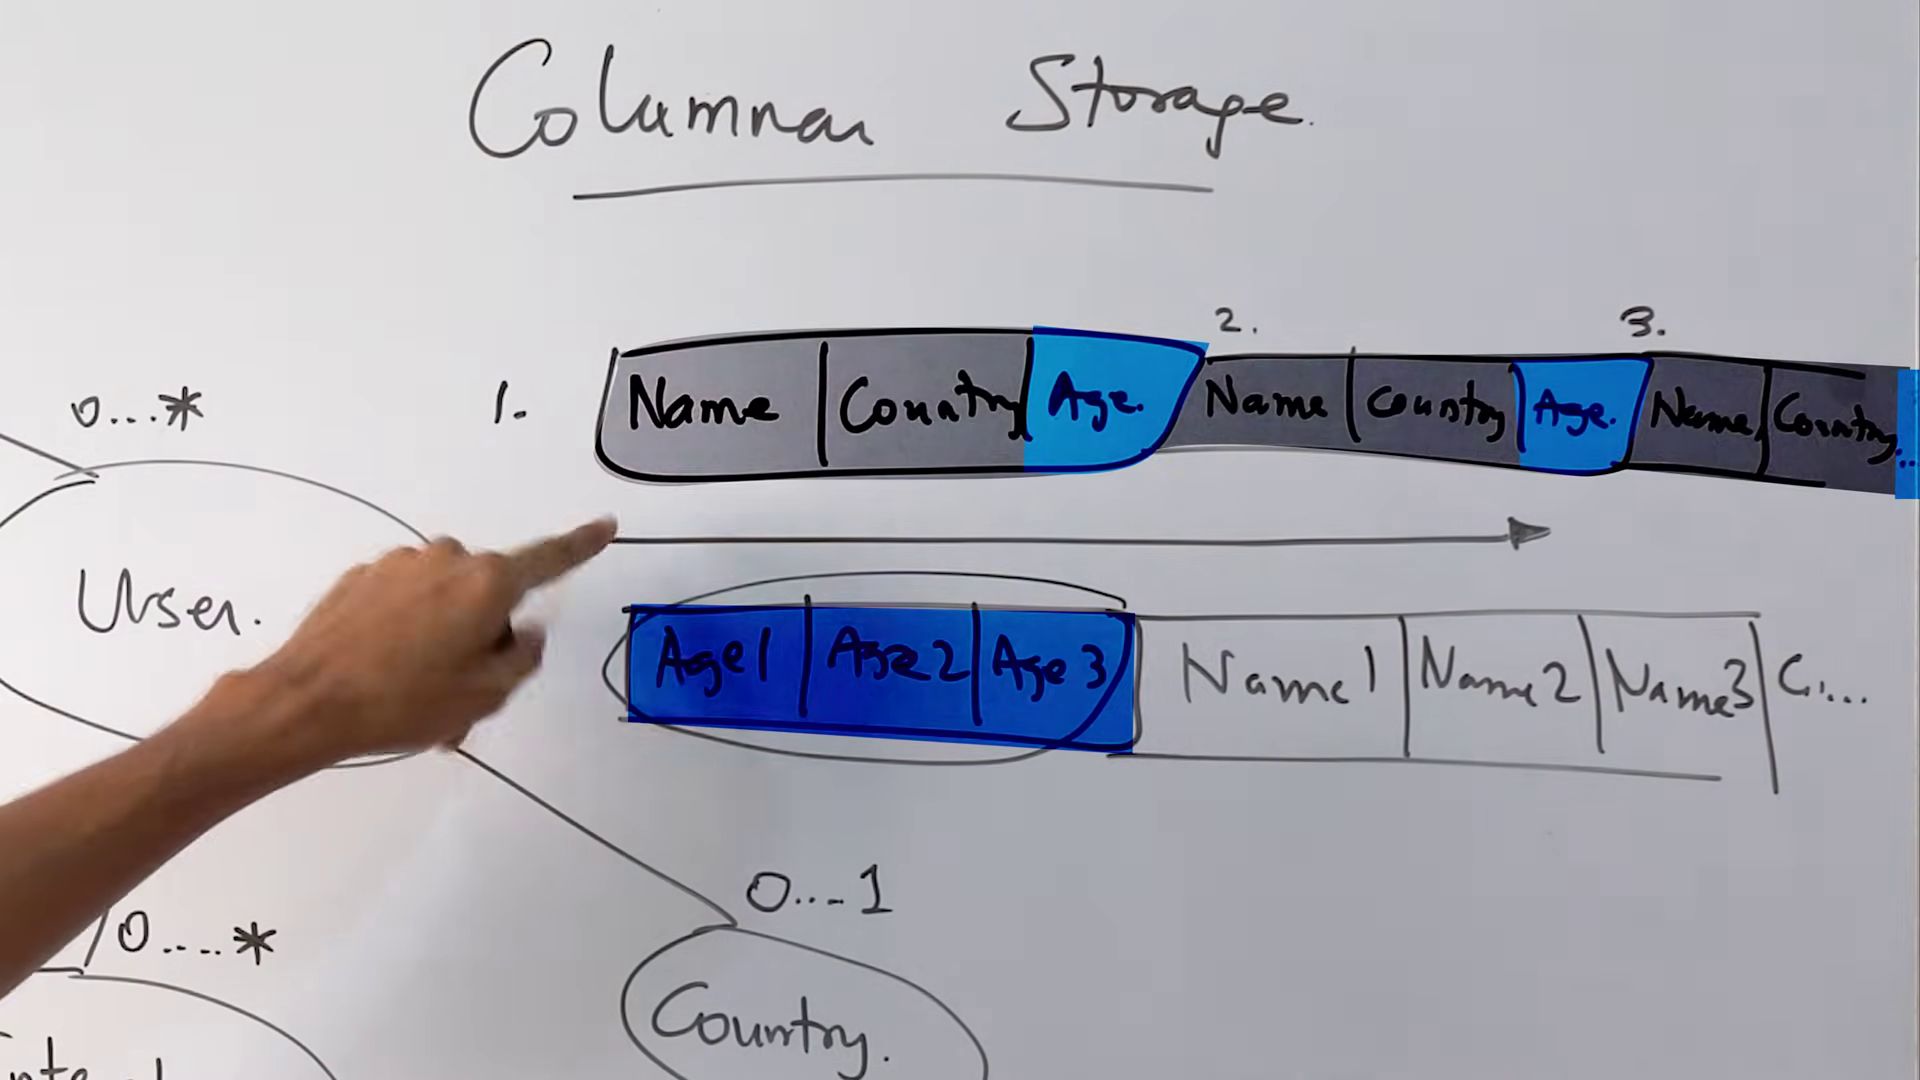 Columnar Storage.
2. 3.
1. Name Country Age. Name Country Age. Name Country...
0...*
User.
Age1 Age2 Age3 Name1 Name2 Name3 C....
0...1
0....*
Country.